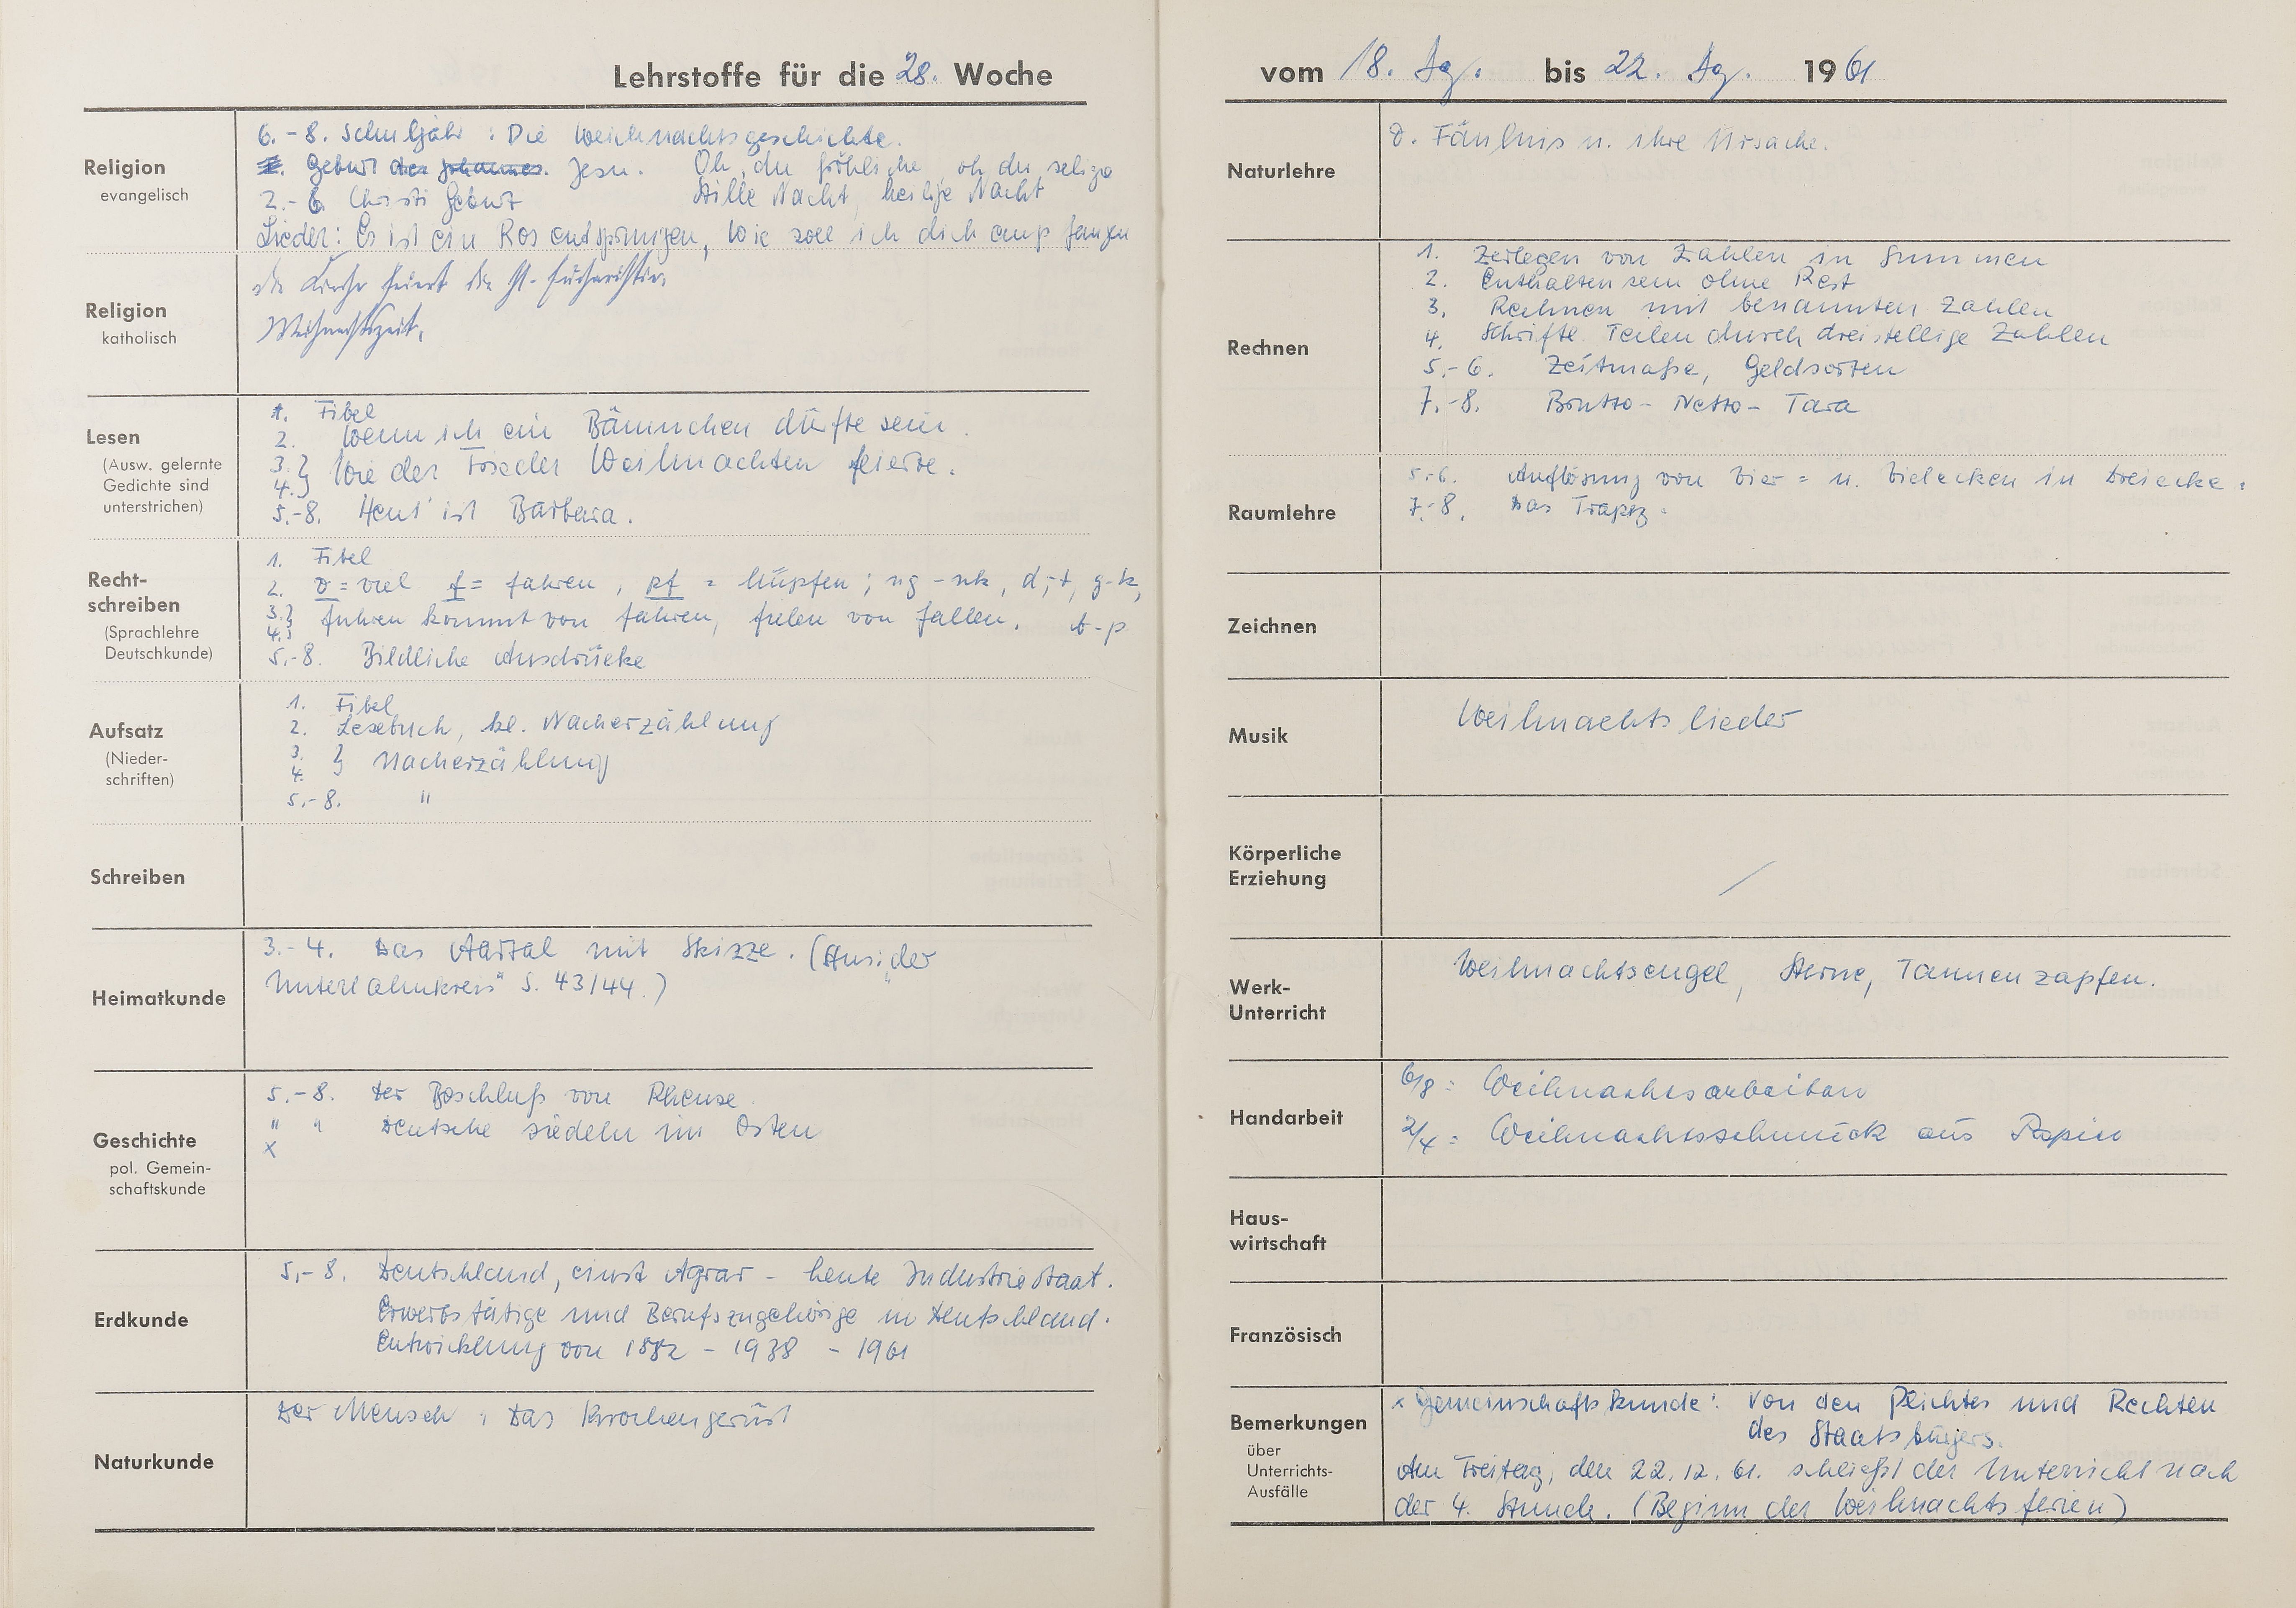 Lehrstoffe für die 28. Woche
Religion
evangelisch
6.-8. Schuljahr: Die Weihnachtsgeschichte.
Geburt des Johannes. Jesu. Oh, du fröhliche, oh du selige
2.- 6. Christi Geburt Stille Nacht, heilige Nacht
Lieder: Es ist ein Ros entsprungen, Wie soll ich dich empfangen
Religion
katholisch
Die Kirche feiert die hl. Eucharistie.
Weihnachtszeit.
Lesen
(Ausw. gelernte
Gedichte sind
unterstrichen)
1. Fibel
2. Wenn ich ein Bäumchen dürfte sein.
3.} Wie der Frieder Weihnachten feierte.
4.}
5.-8. Heut' ist Barbara.
Recht-
schreiben
(Sprachlehre
Deutschkunde)
1. Fibel
2. v = viel f = fahren, pf = hüpfen; ng - nk, d-t, g-k,
3.} fuhren kommt von fahren, fielen von fallen. b-p
4.}
5.-8. Bildliche Ausdrücke
Aufsatz
(Nieder-
schriften)
1. Fibel
2. Lesebuch, kl. Nacherzählung
3. } Nacherzählung
4.
5.-8. "
Schreiben
Heimatkunde
3.- 4. Das Aartal mit Skizze. (Aus: „der
Unterlahnkreis" S. 43/44.)
Geschichte
pol. Gemein-
schaftskunde
5.-8. Der Beschluß von Rhense.
" " Deutsche siedeln im Osten
x
Erdkunde
5.-8. Deutschland, einst Agrar - heute Industriestaat.
Erwerbstätige und Berufszugehörige in Deutschland.
Entwicklung von 1882 - 1938 - 1961
Naturkunde
Der Mensch: Das Knochengerüst
vom 18. Dz. bis 22. Dz. 1961
Naturlehre
d. Fäulnis u. ihre Ursache.
Rechnen
1. Zerlegen von Zahlen in Summen
2. Enthaltensein ohne Rest
3. Rechnen mit benannten Zahlen
4. Schriftl. Teilen durch dreistellige Zahlen
5.-6. Zeitmaße, Geldsorten
7.-8. Brutto - Netto - Tara
Raumlehre
5.-6. Auflösung von Vier = u. Vielecken in Dreiecke.
7.-8. Das Trapez.
Zeichnen
Musik
Weihnachtslieder
Körperliche
Erziehung
Werk-
Unterricht
Weihnachtsengel, Sterne, Tannenzapfen.
Handarbeit
6/8 = Weihnachtsarbeiten
2/4 = Weihnachtsschmuck aus Papier
Haus-
wirtschaft
Französisch
Bemerkungen
über
Unterrichts-
Ausfälle
x Gemeinschaftskunde: Von den Plichten und Rechten
des Staatsbürgers.
Am Freitag, den 22.12.61. schließt der Unterricht nach
der 4. Stunde. (Beginn der Weihnachtsferien)